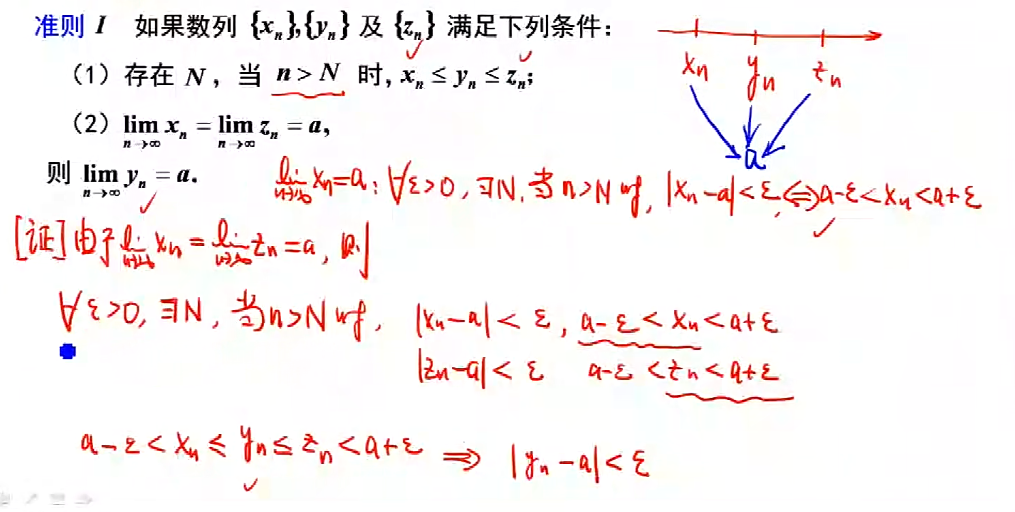 准则 I 如果数列 {xₙ},{yₙ} 及 {zₙ} 满足下列条件：
（1）存在 N，当 n > N 时, xₙ ≤ yₙ ≤ zₙ;
（2）lim xₙ = lim zₙ = a,
n→∞ n→∞
则 lim yₙ = a.
n→∞
xₙ yₙ zₙ
a
lim xₙ=a: ∀ε>0, ∃N, 当n>N时, |xₙ-a|<ε ⇔ a-ε<xₙ<a+ε
n→∞
[证] 由于 lim xₙ = lim zₙ = a, 则
n→∞ n→∞
∀ε>0, ∃N, 当n>N时, |xₙ-a|<ε, a-ε<xₙ<a+ε
|zₙ-a|<ε a-ε<zₙ<a+ε
a-ε<xₙ≤yₙ≤zₙ<a+ε ⇒ |yₙ-a|<ε